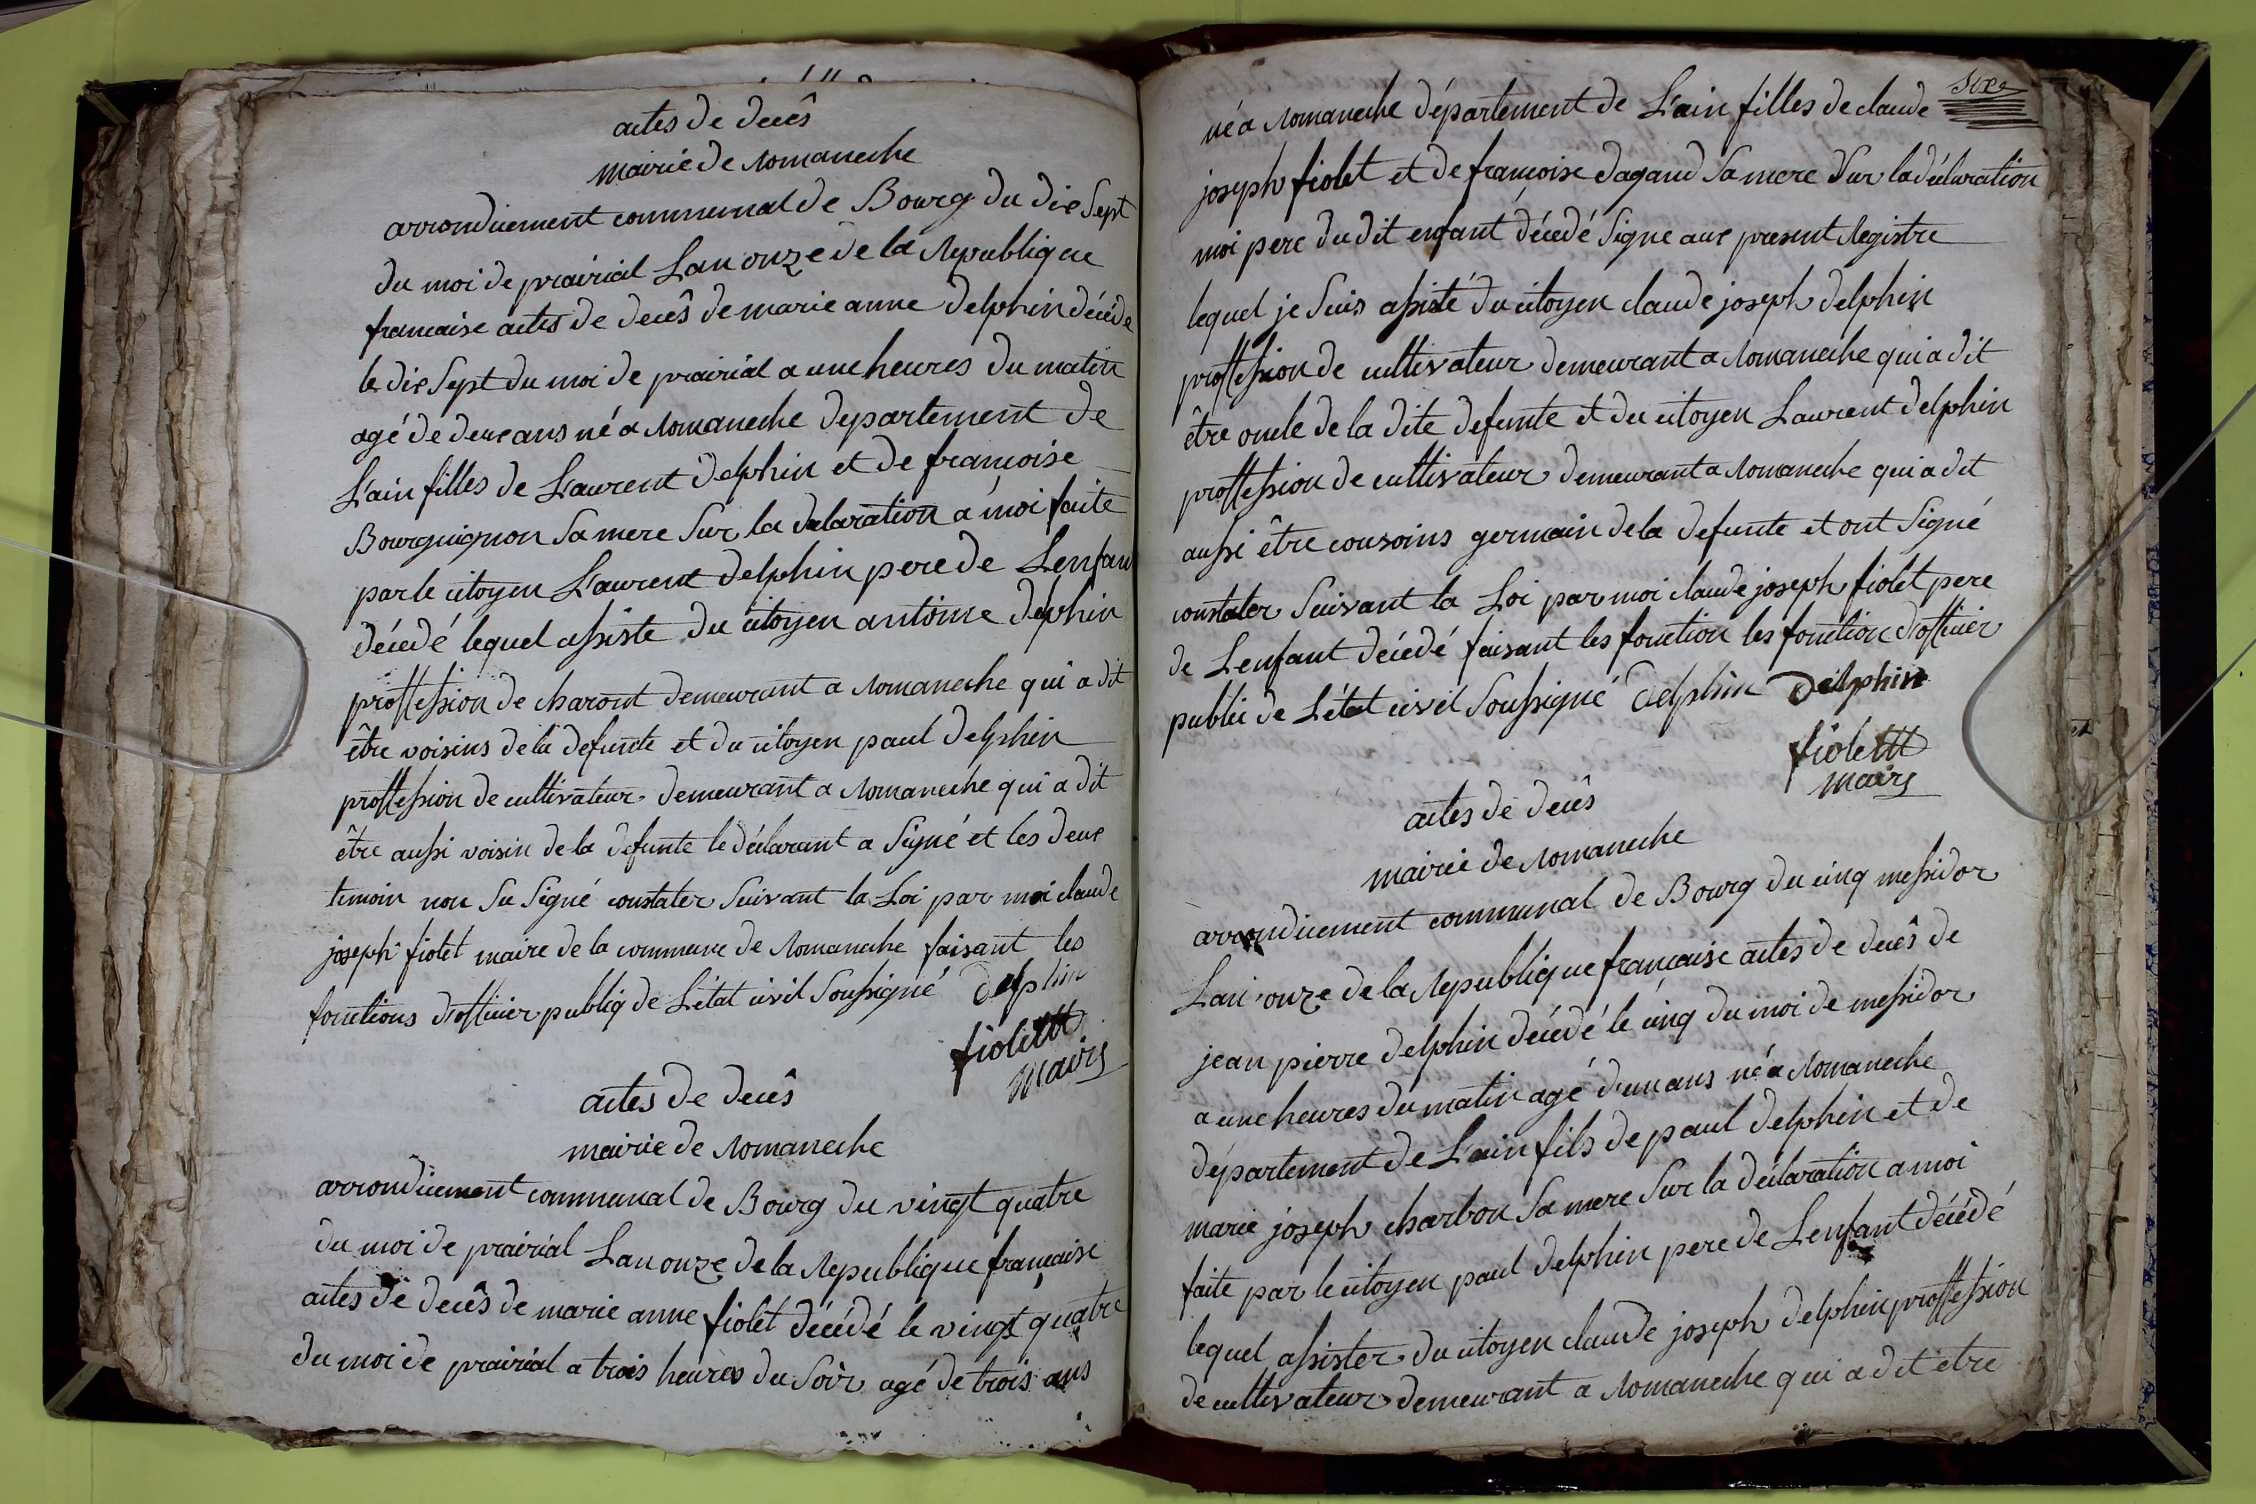 actes de decês
mairie de Romaneche
arrondicement communal de Bourg du dix Sept
du moi de prairial Lan onze de la Republique
francaise actes de decês de marie anne delphin décéde
le dix Sept du moi de prairial a une heures du matin
agé de deux ans né a Romaneche departement de
L'ain filles de Laurent delphin et de françoise
Bourguignon Sa mere Sur la delaration a moi faite
par le citoyen Laurent delphin pere de Lenfan
décédé lequel assiste du citoyen antoine delphin
proffession de charont demeurant a Romaneche qui a dit
être voisins de la defunte et du citoyen paul delphin
proffession de cultivateur demeurant a Romaneche qui a dit
être aussi voisin de la defunte le déclarant a Signé et les deux
temoin non Su Signé constater Suivant la Loi par moi claude
joseph fiolet maire de la commune de Romaneche faisant les
fonctions d'officier publiq de L'état civil Soussigné delphin
fioletttt
maire
actes de decês
mairie de Romaneche
arrondicement communal de Bourg du vingt quatre
du moi de prairial Lan onze de la Republique francaise
actes de decês de marie anne fiolet décédé le vingt quatre
du moi de prairial a trois heures du Soir agé de trois ans
Sixe
né a Romaneche département de L'ain filles de claude
joseph fiolet et de françoise dagand Sa mere Sur la déclaration
moi pere du dit enfant décedé Signe aux present Registre
lequel je Suis assisté du citoyen claude joseph delphin
proffession de cultivateur demeurant a Romaneche qui a dit
être oncle de la dite defunte et du citoyen Laurent delphin
proffession de cultivateur demeurant a Romaneche qui a dit
aussi être cousoins germain de la defunte et ont Signé
constater Suivant la Loi par moi claude joseph fiolet pere
de Lenfant décedé faisant les fonction les fonction d'officier
public de L'état civil Soussigné delphin Delphin
fioletttt
maire
actes de decês
mairie de Romaneche
arrondicement communal de Bourg du cinq messidor
Lan onze de la Republique française actes de decês de
jean pierre delphin décedé le cinq du moi de messidor
a une heures du matin agé d'un ans né a Romaneche
département de L'ain fils de paul delphin et de
marie joseph charbon Sa mere Sur la déclaration a moi
faite par le citoyen paul delphin pere de Lenfant décédé
lequel assister du citoyen claude joseph delphin proffession
de cultivateur demeurant a Romaneche qui a dit etre